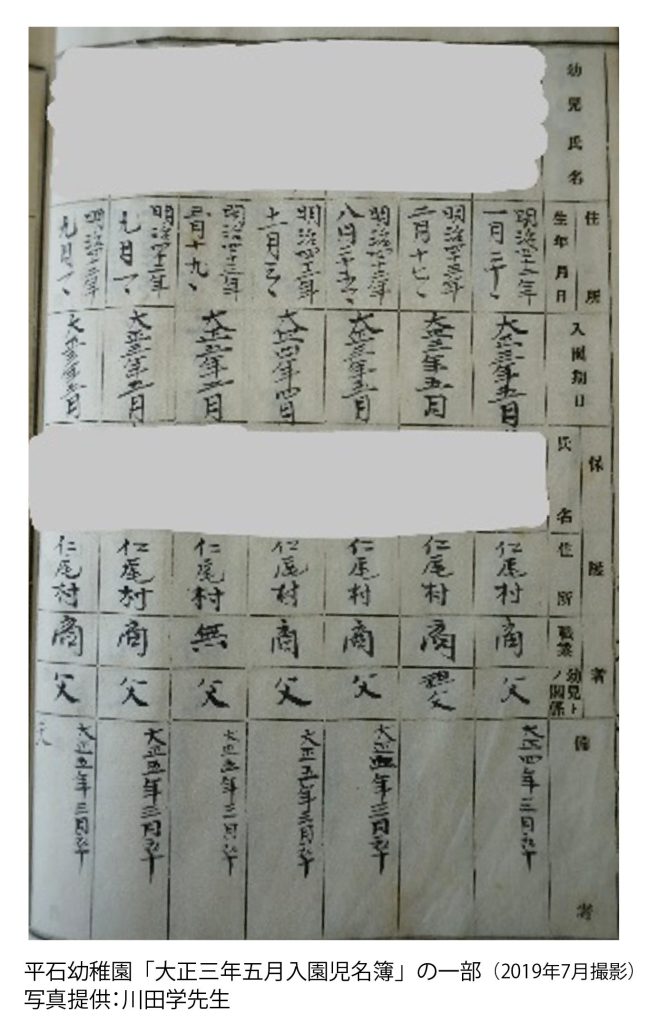 幼児氏名
住所
生年月日
入園期日
保護者
氏名
住所
職業
幼児トノ関係
備考
明治四十二年
一月二十
大正三年五月
仁尾村
商
父
大正四年三月
明治四十三年
二月十七
大正三年五月
仁尾村
商
祖父
明治四十三年
大正三年五月
仁尾村
商
父
大正五年三月
明治四十三年
大正四年四月
仁尾村
商
父
大正五年三月
明治四十三年
三月十九
仁尾村
無
父
大正五年三月
明治四十二年
九月一
大正三年五月
仁尾村
商
父
大正五年三月
九月一
大正三年五月
仁尾村
商
父
大正五年三月
平石幼稚園「大正三年五月入園児名簿」の一部（2019年7月撮影）
写真提供：川田学先生